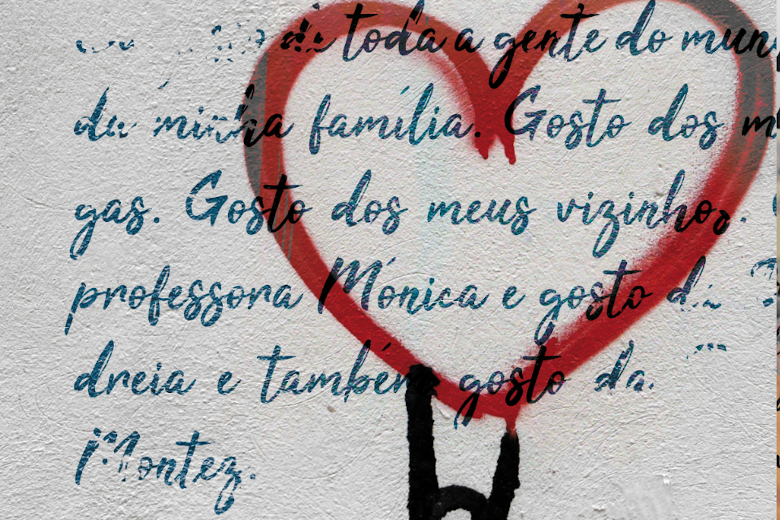 toda a gente do
da minha família. Gosto dos
gas. Gosto dos meus vizinhos.
professora Mónica e gosto
dreia e também gosto da
Montez.